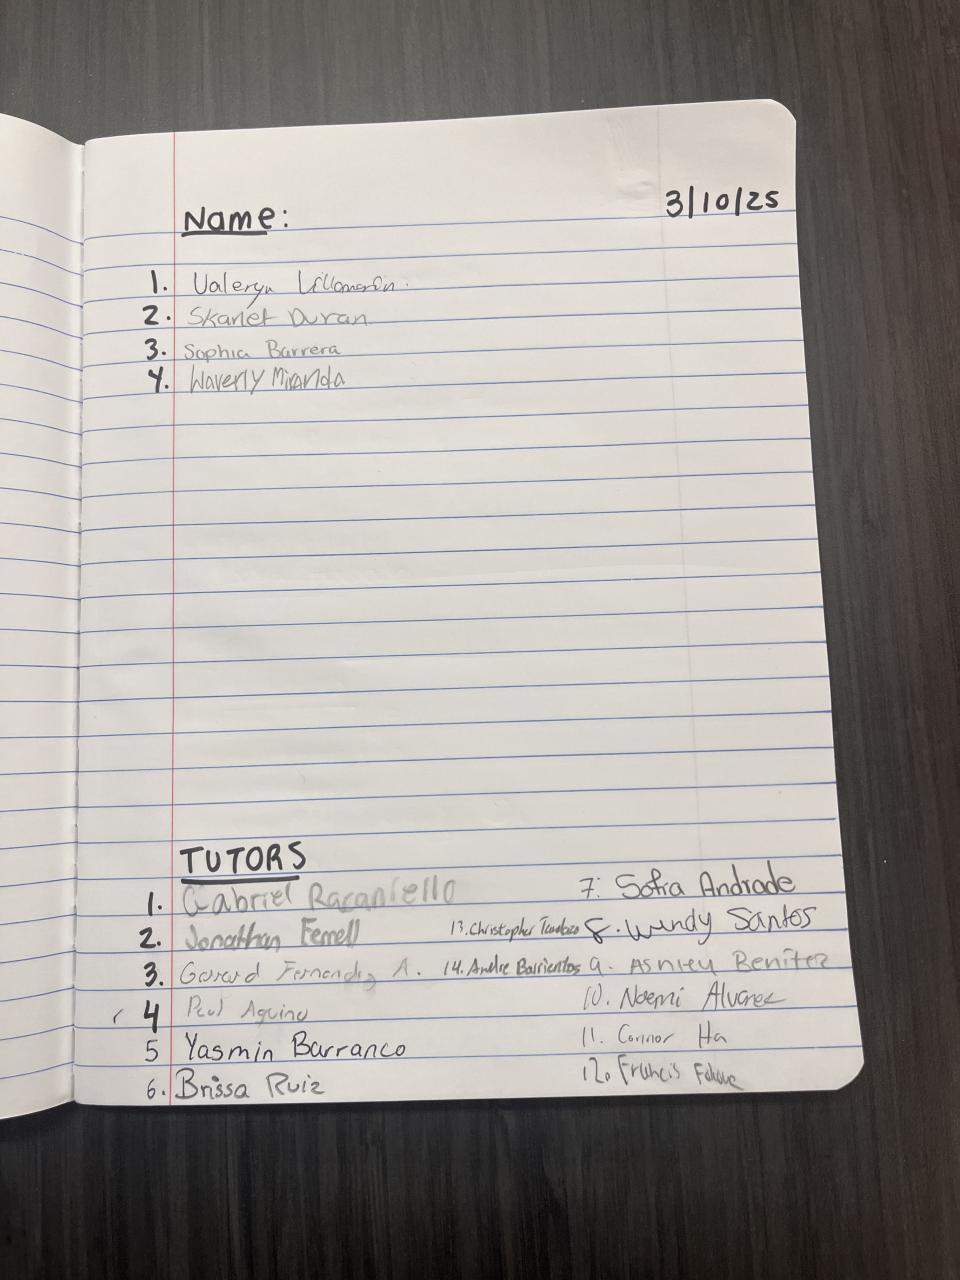 Name:
3/10/25
1. Valeryn
2. Skanet Duran
3. Sophia Barrera
4. Waverly Miranda
TUTORS
1. Gabriel Racaniello
2. Jonathan Ferrell
3. Gerard Fernandez A.
4 Paul Aquino
5 Yasmin Barranco
6. Brissa Ruiz
13. Christopher
14. Andre Barrientos
7: Sofia Andrade
8. Wendy Santos
9. Ashley Benitez
10. Noemi Alvarez
11. Connor Ha
12. Francis